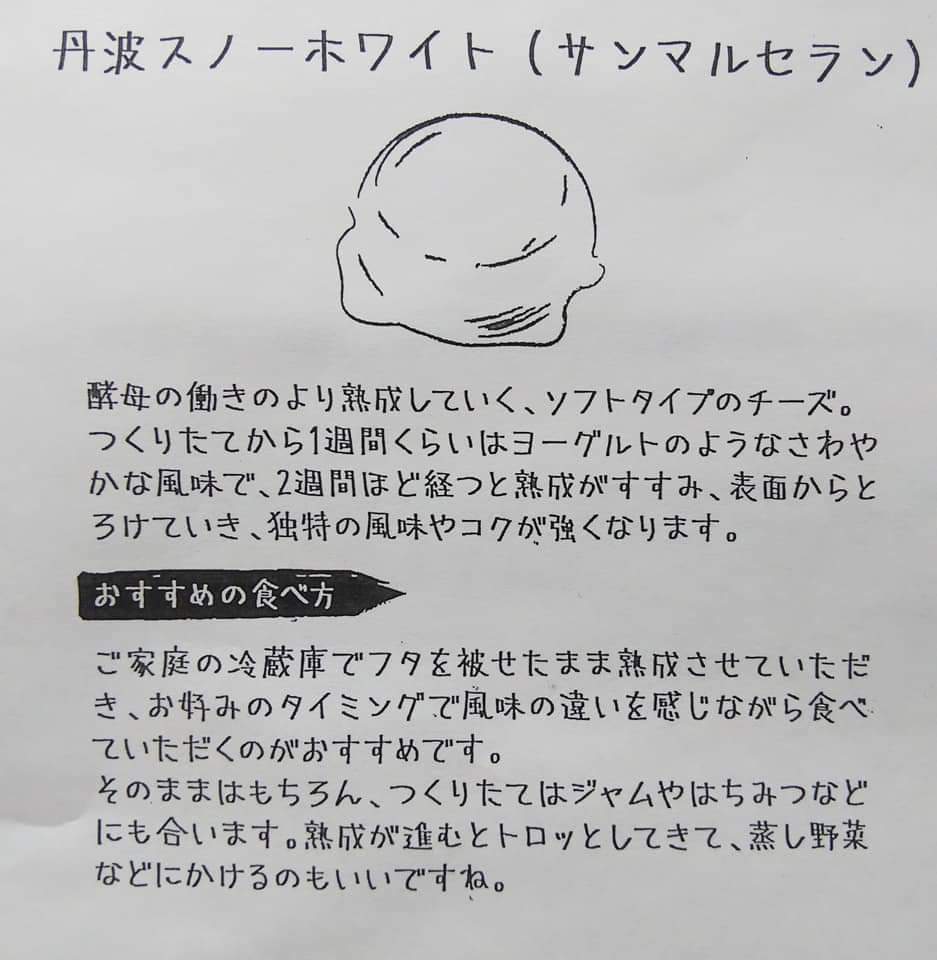 丹波スノーホワイト(サンマルセラン)
酵母の働きのより熟成していく、ソフトタイプのチーズ。
つくりたてから1週間くらいはヨーグルトのようなさわや
かな風味で、2週間ほど経つと熟成がすすみ、表面からと
ろけていき、独特の風味やコクが強くなります。
おすすめの食べ方
ご家庭の冷蔵庫でフタを被せたまま熟成させていただ
き、お好みのタイミングで風味の違いを感じながら食べ
ていただくのがおすすめです。
そのままはもちろん、つくりたてはジャムやはちみつなど
にも合います。熟成が進むとトロッとしてきて、蒸し野菜
などにかけるのもいいですね。